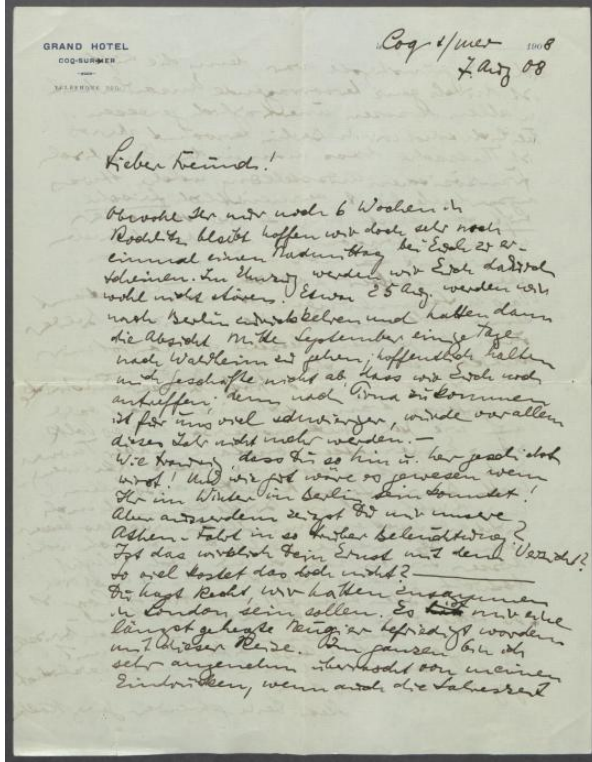 GRAND HOTEL
COQ-SUR-MER
TÉLÉPHONE
Coq s/mer 1908
7. Aug 08
Lieber Freund!
Obwohl Ihr nur noch 6 Wochen in
Rochlitz bleibt hoffen wir doch sehr noch
einmal einen Nachmittag bei Euch zu er-
scheinen. Im Umzug werden wir Euch dadurch
wohl nicht stören. Etwa 25 Aug. werden wir
nach Berlin zurückkehren und hatten dann
die Absicht Mitte September einige Tage
nach Waldheim zu gehen, hoffentlich halten
mich Geschäfte nicht ab, dass wir Euch noch
antreffen, denn nach Pirna zu kommen
ist für uns viel schwieriger, würde vor allem
dieses Jahr nicht mehr werden. —
Wie traurig, dass Du so hin u. her geschickt
wirst! Und wie gut wäre es gewesen wenn
Ihr im Winter in Berlin sein konntet!
Aber ausserdem zeigst Du mir unsere
Athen-Fahrt in so trüber Beleuchtung?
Ist das wirklich Dein Ernst mit dem Verzicht?
So viel kostet das doch nicht? —
Du hast Recht, wir hätten zusammen
in London sein sollen. Es ist mir eine
längst gehegte Neugier befriedigt worden
mit dieser Reise. Im ganzen bin ich
sehr angenehm überrascht von meinen
Eindrücken, wenn auch die Jahreszeit